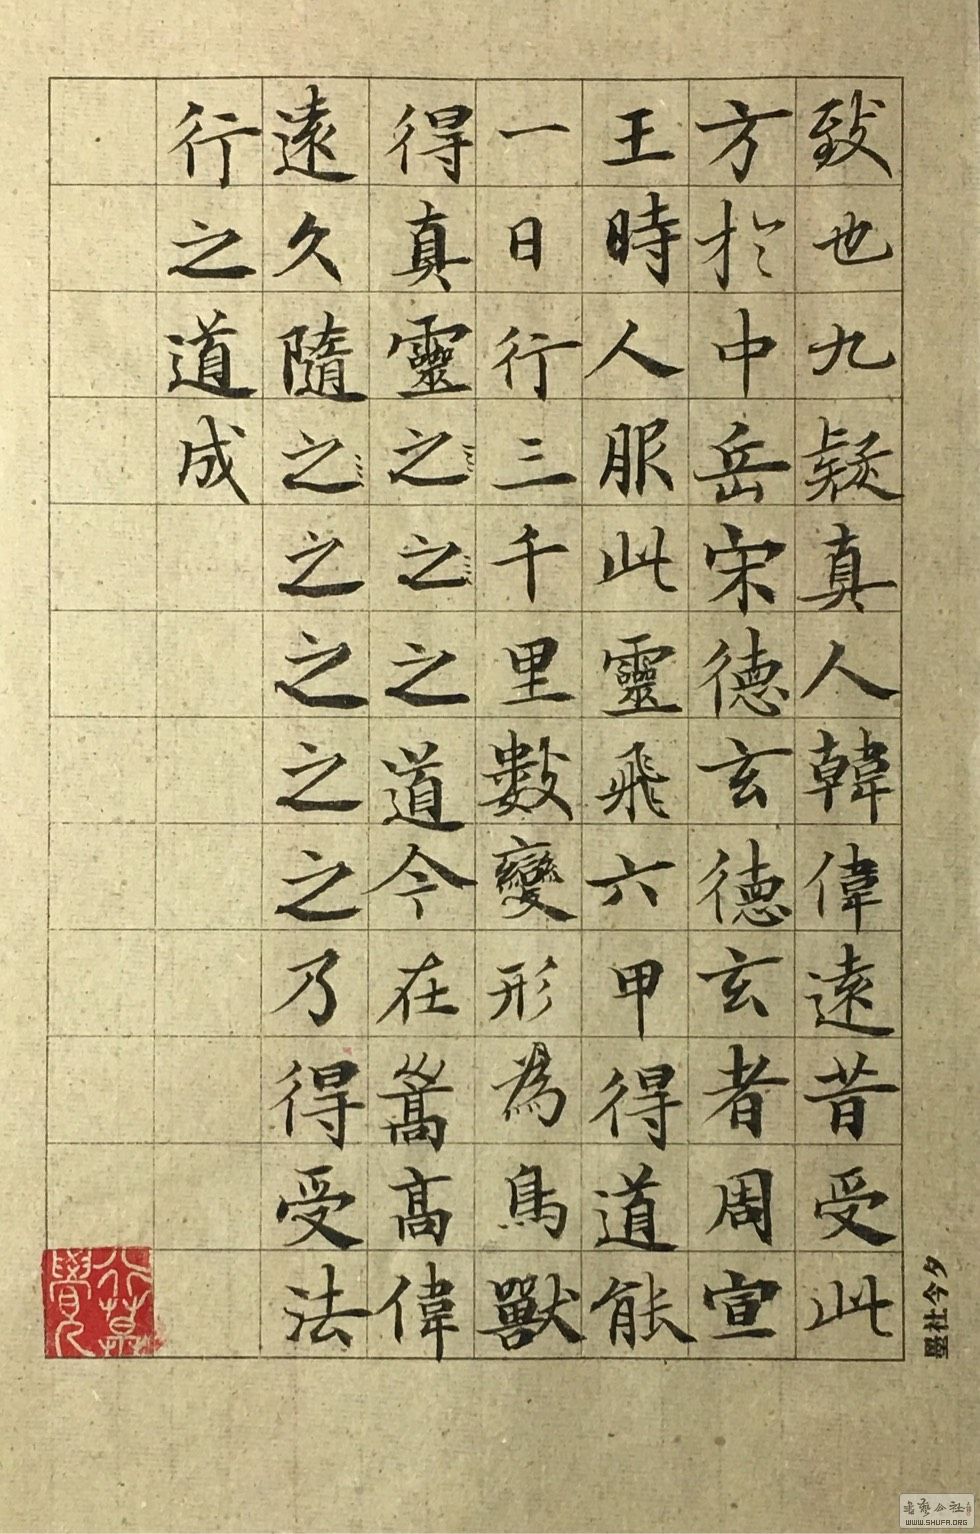 致也九疑真人韓偉遠昔受此
方於中岳宋德玄德玄者周宣
王時人服此靈飛六甲得道能
一日行三千里數變形為鳥獸
得真靈之之之今道今在嵩高偉
遠久隨之之之之之乃得受法
行之道成
墨社今夕
書藝公社
WWW.SHUFA.ORG